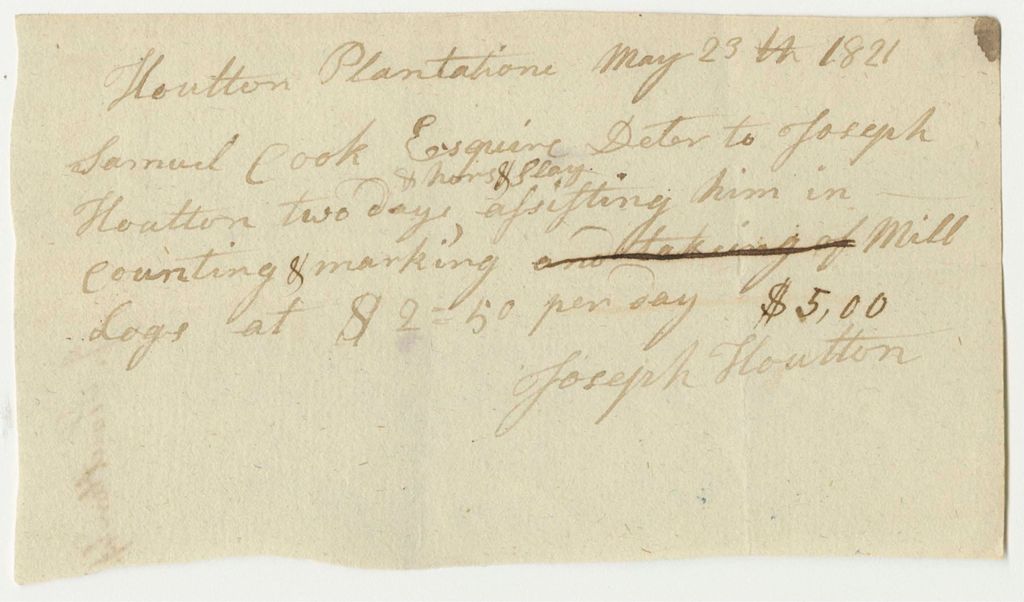 Houtton Plantatione May 23th 1821
Samuel Cook Esquire Deter to Joseph
& hors & Slay
Houtton two days assisting him in
Counting & marking and takeing of Mill
Logs at $2=50 per day $5,00
Joseph Houtton